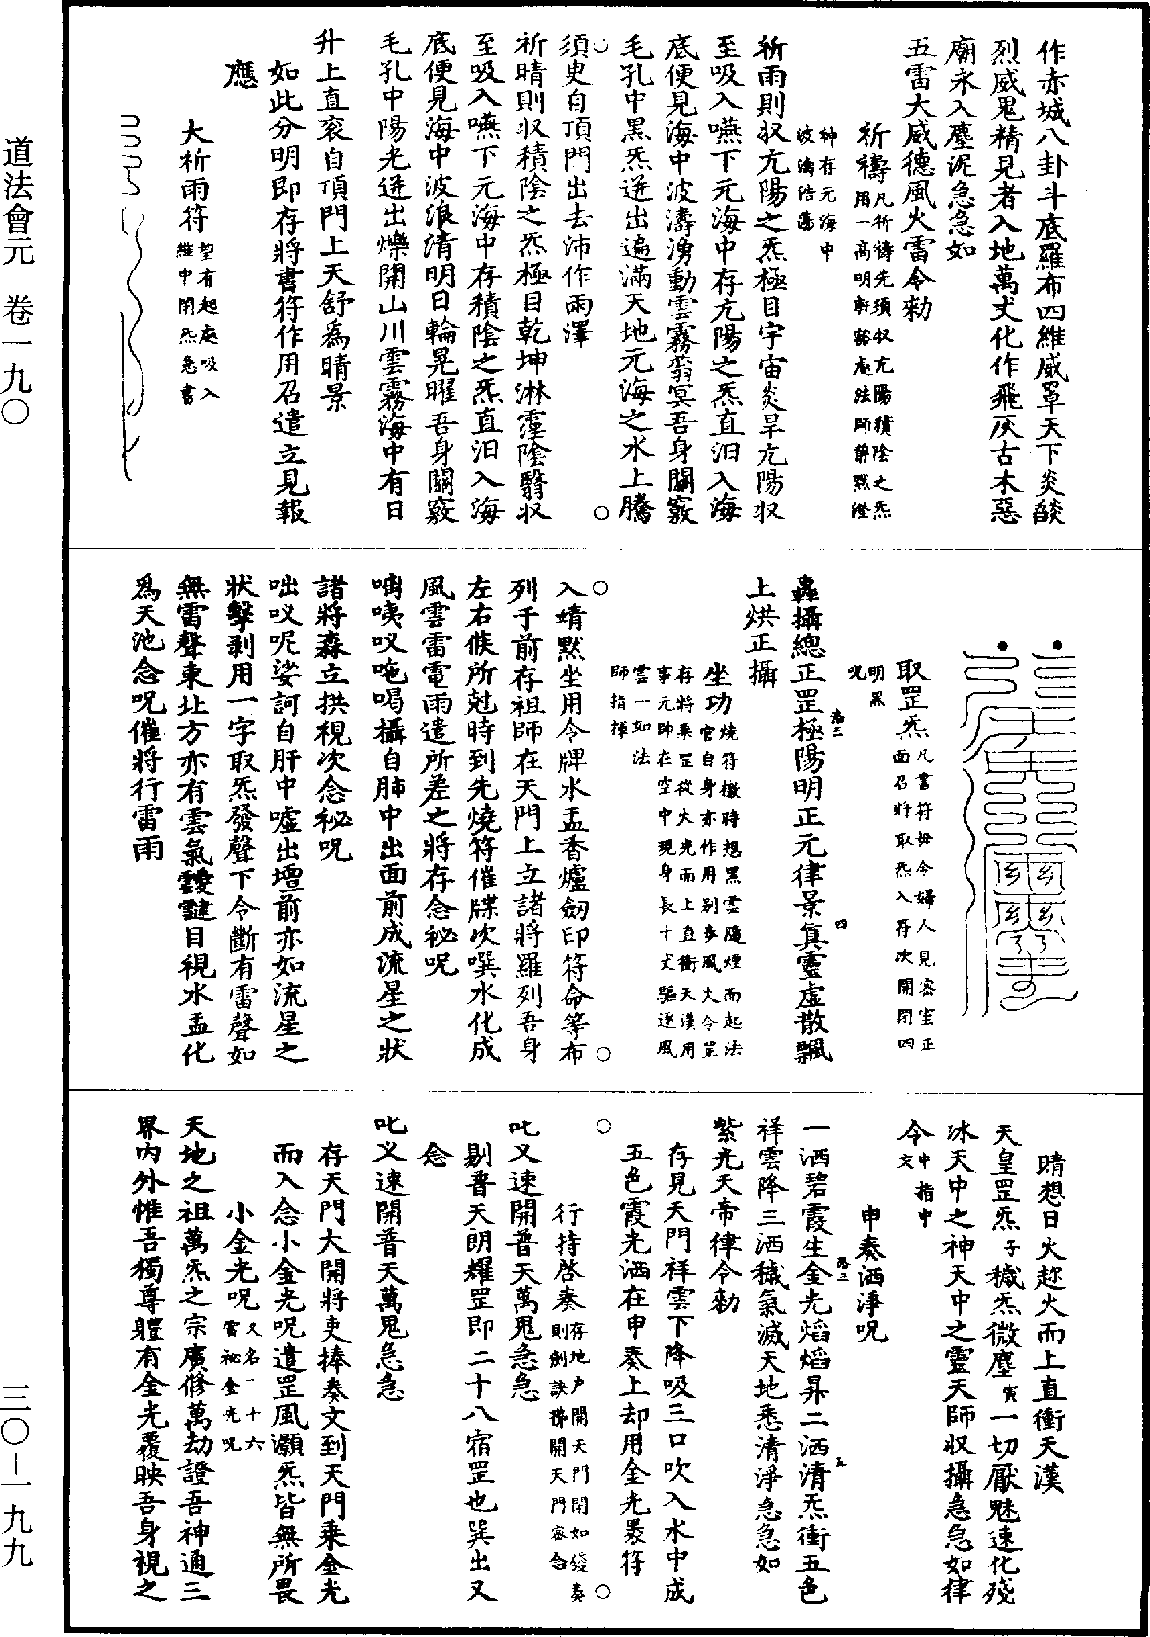 作赤城八卦斗底羅布四維威罩天下炎燄
烈威鬼精見者入地萬丈化作飛灰古木惡
廟永入塵泥急急如
五雷大威德風火雷令勑
祈禱凡祈禱先須収亢陽積陰之炁
用一高明軒豁處法師靜默澄
神存元海中
波濤浩蕩
祈雨則収亢陽之炁極目宇宙炎旱亢陽収
至吸入嚥下元海中存亢陽之炁直汨入海
底便見海中波濤湧動雲霧蓊冥吾身關竅
毛孔中黑炁迸出遍滿天地元海之水上騰
須臾自頂門出去沛作雨澤
祈晴則収積陰之炁極目乾坤淋霪陰翳収
至吸入嚥下元海中存積陰之炁直汨入海
底便見海中波浪清明日輪晃曜吾身關竅
毛孔中陽光迸出爍開山川雲霧海中有日
升上直衮自頂門上天舒爲晴景
如此分明即存將書符作用召遣立見報
應
大祈雨符望有起處吸入
維中閉炁急書
取罡炁凡書符毋令婦人見密室正
面召將取炁入存次開閉四
明黑
呪
轟攝總正罡極陽明正元律景真靈虛散飄
上烘正攝
坐功燒符檄時想黑雲隨煙而起法
官自身亦作用别步風火令罡
存將乘罡從大光而上直衝天漢用
事元帥在空中現身長十丈驅逐風
雲一如法
師指揮
入靖默坐用令牌水盂香爐劒印符命等布
列于前存祖師在天門上立諸將羅列吾身
左右候所尅時到先燒符催牒次噀水化成
風雲雷電雨遣所差之將存念祕呪
㖡咦㕚唵喝攝自肺中出面前成流星之狀
諸將森立拱視次念秘呪
咄㕚呢娑訶自肝中噓出壇前亦如流星之
狀擊剥用一字取炁發聲下令斷有雷聲如
無雷聲東北方亦有雲氣靉靆目視水盂化
爲天池念呪催將行雷雨
晴想日火趂火而上直衝天漢
天皇罡炁子穢炁微塵寅一切厭魅速化殘
冰天中之神天中之靈天師収攝急急如律
令中指中
文
申奏洒淨呪
一洒碧霞生金光熖熖昇二洒清炁衝五色
祥雲降三洒穢氣滅天地悉清淨急急如
紫光天帝律令勑
存見天門祥雲下降吸三口吹入水中成
五色霞光洒在申奏上却用金光㬥符
行持啓奏存地户開天門閉如發奏
則劍訣拂開天門密合
叱㕚速開普天萬鬼急急
剔普天朗耀罡即二十八宿罡也巽出又
念
叱㕚速開普天萬鬼急急
存天門大開將吏捧奏文到天門乘金光
而入念小金光呪遣罡風灝炁皆無所畏
小金光呪又名一十六
雷祕金光呪
天地之祖萬炁之宗廣修萬劫證吾神通三
界内外惟吾獨尊軆有金光覆映吾身視之
道法會元　卷一九〇
三〇－一九九